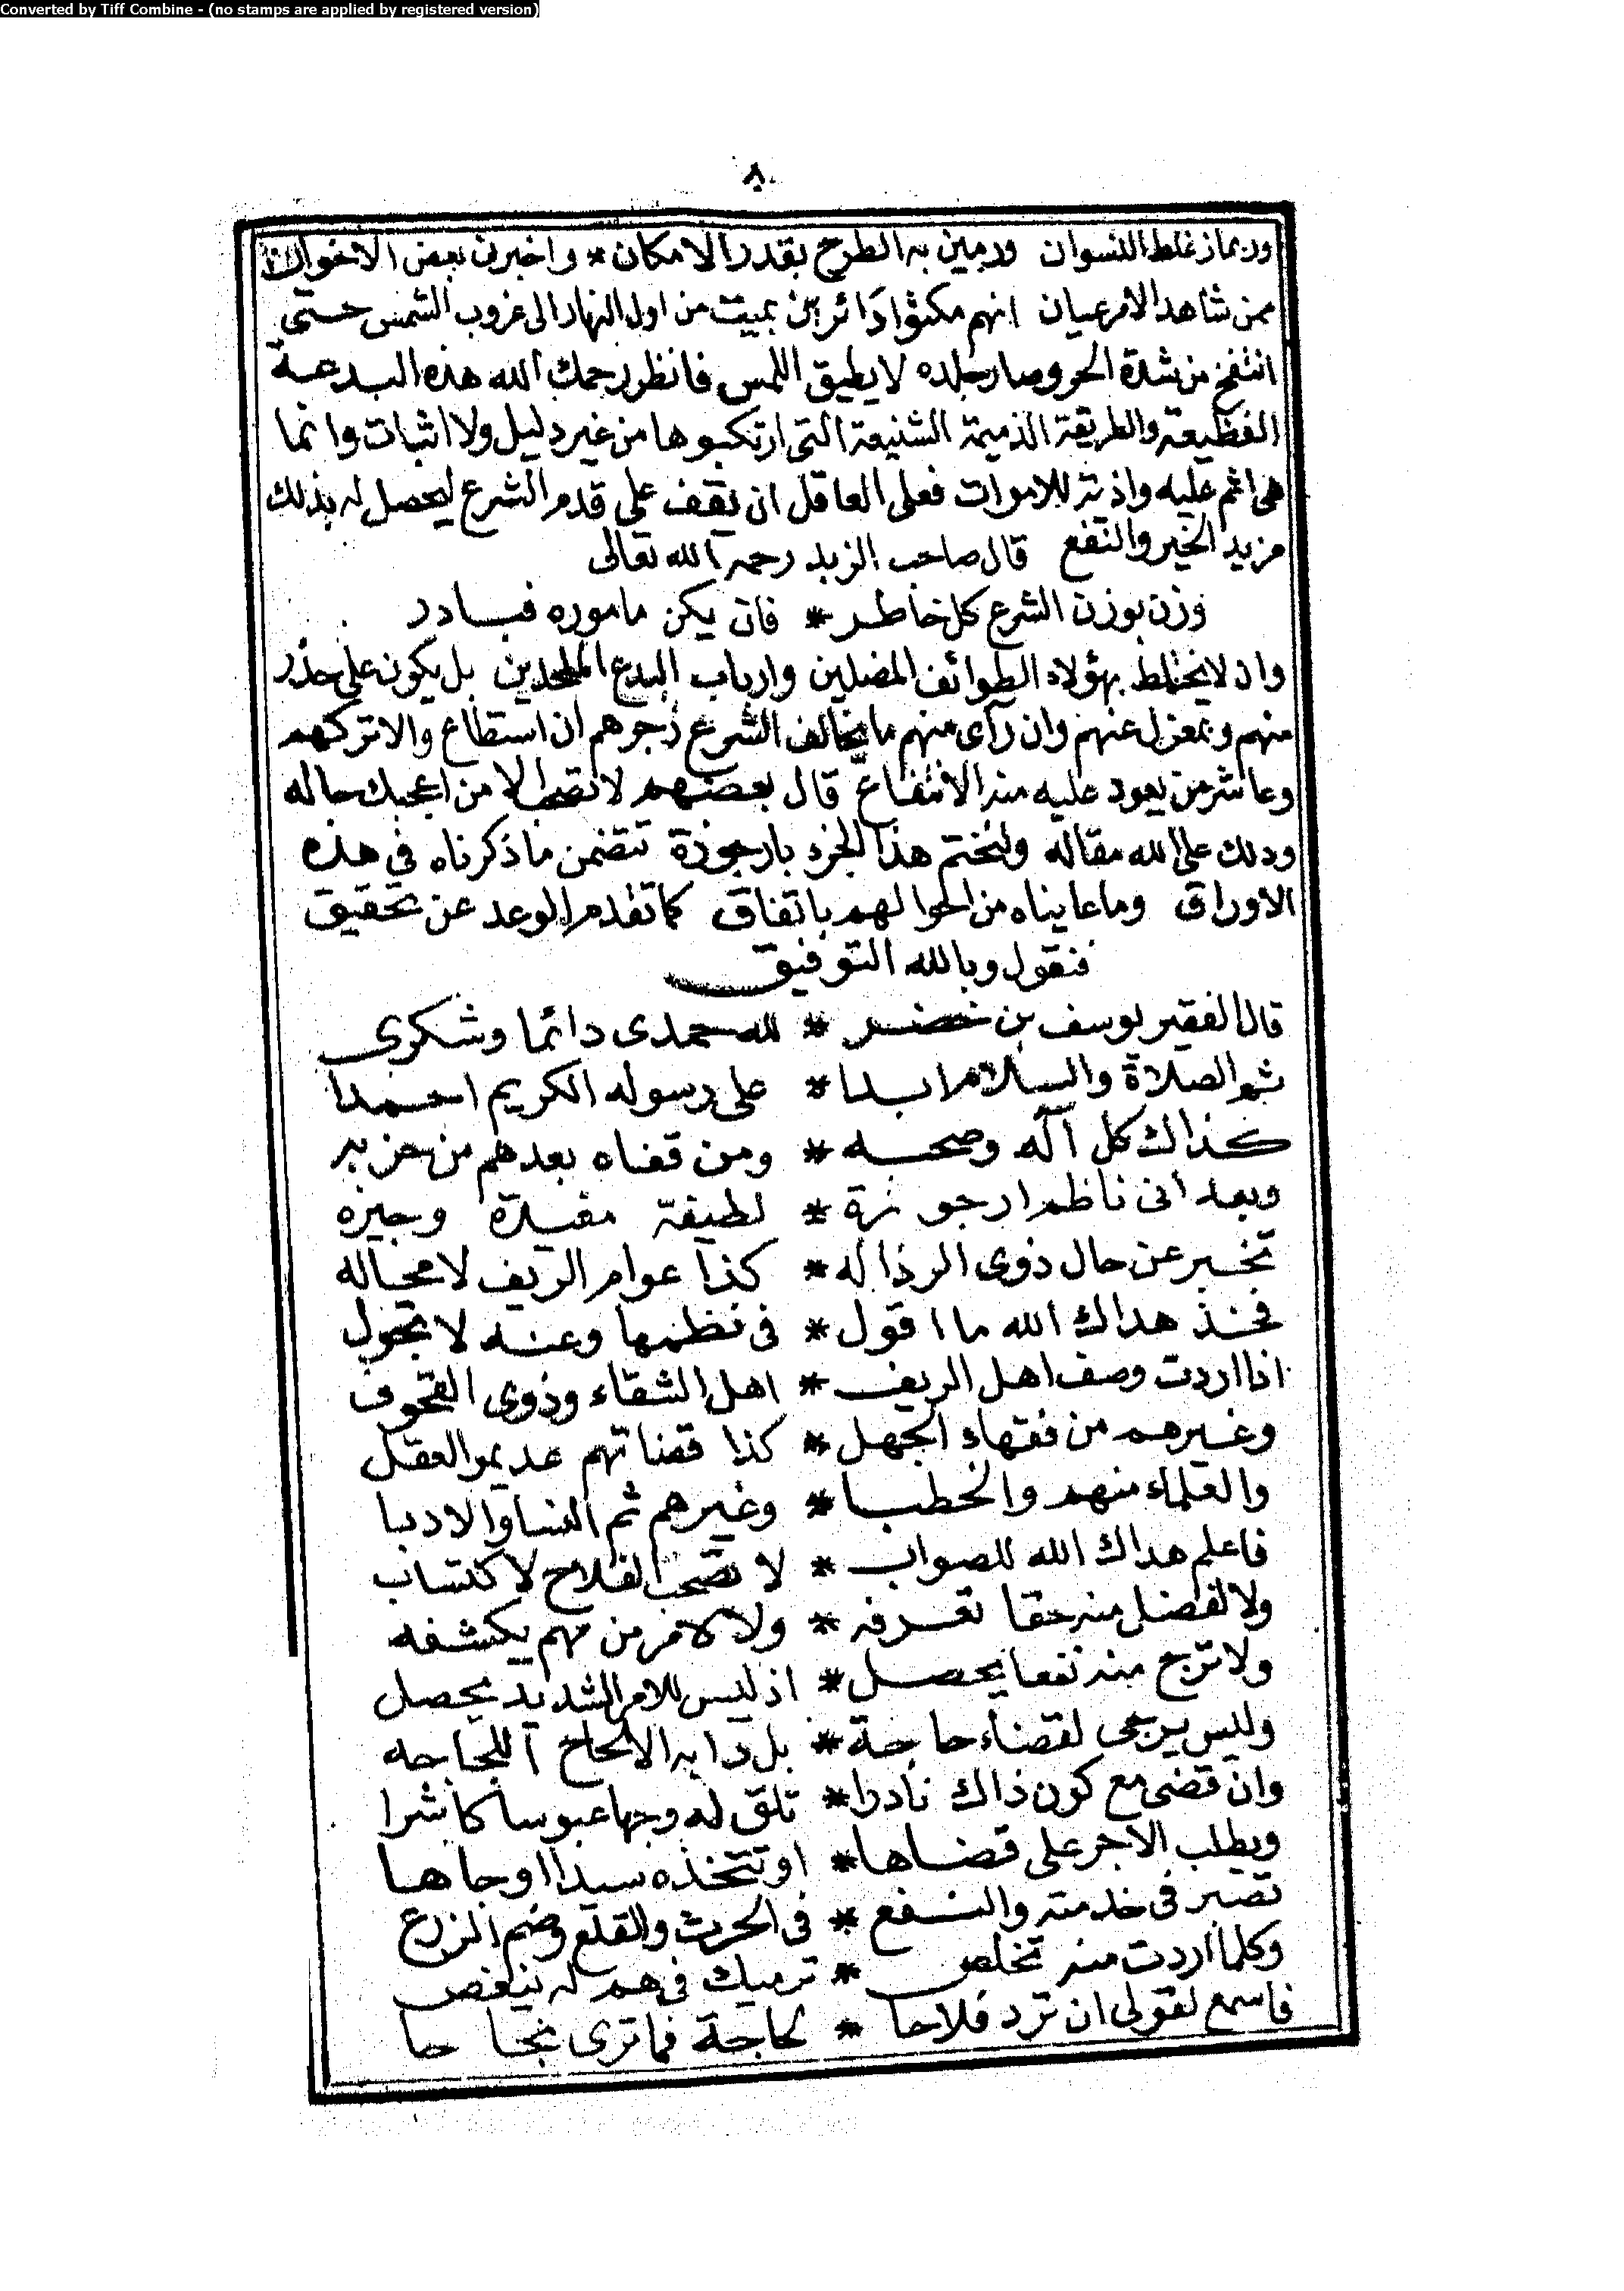 Converted by Tiff Combine - (no stamps are applied by registered version)
٨٠
وربما زغلط النسوان ورمين به الطرح بقدر الامكان * واخبرنى بعض الاخوان
ممن شاهد الامر عيان انهم مكثوا دائرين بميت من اول النهار الى غروب الشمس حتى
انتفخ من شدة الحر وصار جلده لا يطيق اللمس فانظر رحمك الله هذه البدعة
الفظيعة والطريقة الذميمة الشنيعة التى ارتكبوها من غير دليل ولا اثبات وانما
هى اثم عليه واذية للاموات فعلى العاقل ان يقف على قدم الشرع ليحصل له بذلك
مزيد الخير والنفع قال صاحب الزبد رحمه الله تعالى
وزن بوزن الشرع كل خاطر * فان يكن ماموره فبادر
وان لا يختلط بهؤلاء الطوائف المضلين وارباب البدع الملحدين بل يكون على حذر
منهم وبمعزل عنهم وان رآى منهم ما يخالف الشرع زجرهم ان استطاع والا تركهم
وعاشر من يعود عليه منه الانتفاع قال بعضهم لا تصحب الا من اعجبك حاله
ودلك على الله مقاله ولنختم هذا الجزء بارجوزة تتضمن ما ذكرناه فى هذه
الاوراق وما عايناه من احوالهم باتفاق كما تقدم الوعد عن تحقيق
فنقول وبالله التوفيق
قال الفقير يوسف بن خضر * لله حمدى دائما وشكرى
ثم الصلاة والسلام ابدا * على رسوله الكريم احمدا
كذاك كل آله وصحبه * ومن قفاه بعدهم من حزبه
وبعد انى ناظم ارجوزة * لطيفة مفيدة وجيزه
تخبر عن حال ذوى الرذاله * كذا عوام الريف لا محاله
فخذ هداك الله ما اقول * فى نظمها وعنه لا تحول
اذا اردت وصف اهل الريف * اهل الشقاء وذوى القحوف
وغيرهم من فقهاء الجهل * كذا قضاتهم عديمو العقل
والعلماء منهم والخطبا * وغيرهم ثم النسا والادبا
فاعلم هداك الله للصواب * لا تصحب الفلاح لاكتساب
ولا لفضل منه حقا تعرفه * ولا لامر من مهم يكشفه
ولا ترج منه نفعا يحصل * اذ ليس للامر الشديد يحصل
وليس يرجى لقضاء حاجة * بل دابه الالحاح اللجاجه
وان قضى مع كون ذاك نادرا * تلق له وجها عبوسا كاشرا
ويطلب الاجر على قضاها * او تتخذه سيدا او جاها
تصير فى خدمته والنفع * فى الحرث والقلع وضم الزرع
وكلما اردت منه تخلص * ترميك فى هم له ينغص
فاسمع لقولى ان ترد فلاحا * لحاجة فما ترى نجاحا